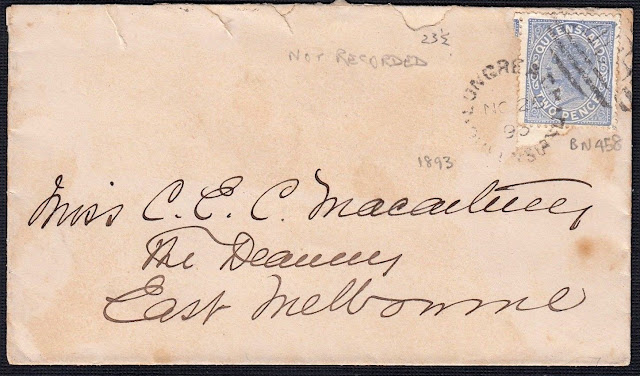 23½
NOT RECORDED
QUEENSLAND
TWO PENCE
LONGREA
NO 2
93
BN458
1893
Miss C. E. C. Macartney
The Deanery
East Melbourne